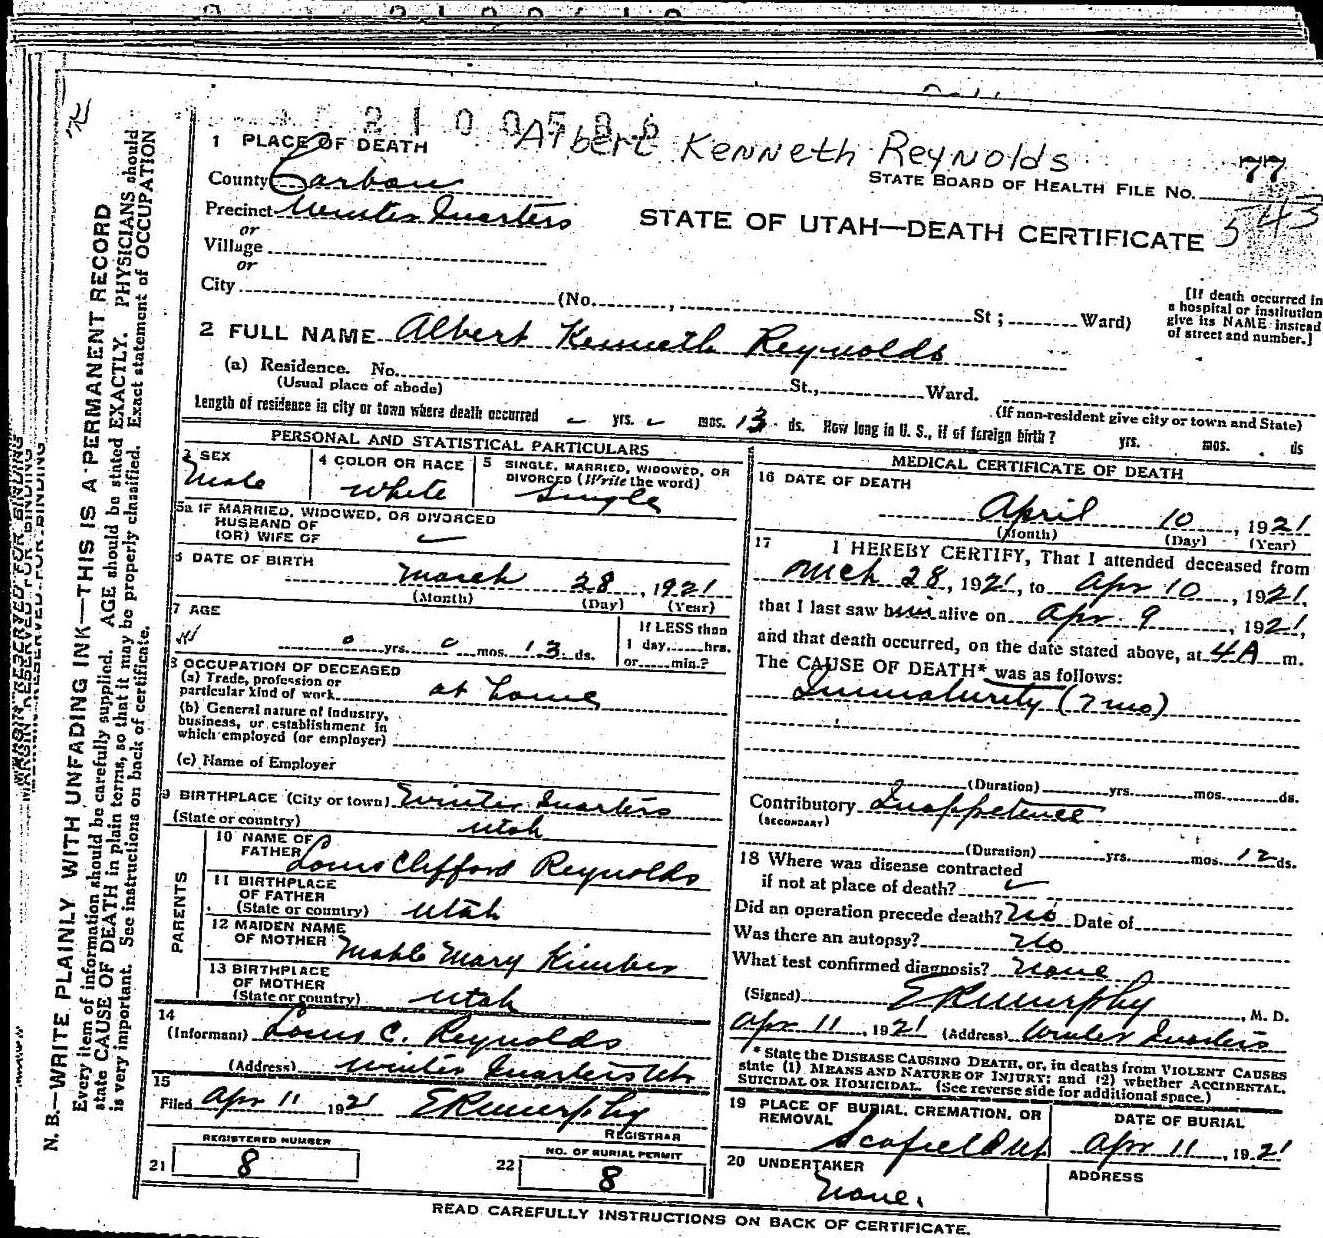 2100586
Albert Kenneth Reynolds
1 PLACE OF DEATH
STATE BOARD OF HEALTH FILE NO. 77
County Carbon
Precinct Winter Quarters
STATE OF UTAH—DEATH CERTIFICATE 543
or
Village
or
City (No. , St ; Ward)
[If death occurred in
a hospital or institution
give its NAME instead
of street and number.]
2 FULL NAME Albert Kenneth Reynolds
(a) Residence. No. St., Ward.
(Usual place of abode)
(If non-resident give city or town and State)
Length of residence in city or town where death occurred - yrs. - mos. 13 ds. How long in U. S., if of foreign birth? yrs. mos. ds
PERSONAL AND STATISTICAL PARTICULARS
3 SEX
Male
4 COLOR OR RACE
White
5 SINGLE, MARRIED, WIDOWED, OR
DIVORCED (Write the word)
Single
5a IF MARRIED, WIDOWED, OR DIVORCED
HUSBAND OF
(OR) WIFE OF
6 DATE OF BIRTH
March 28, 1921
(Month) (Day) (Year)
7 AGE
0 yrs. 0 mos. 13 ds.
If LESS than
1 day hrs.
or min.?
8 OCCUPATION OF DECEASED
(a) Trade, profession or
particular kind of work at home
(b) General nature of Industry,
business, or establishment in
which employed (or employer)
(c) Name of Employer
9 BIRTHPLACE (City or town) Winter Quarters
(State or country) Utah
PARENTS
10 NAME OF
FATHER Louis Clifford Reynolds
11 BIRTHPLACE
OF FATHER
(State or country) Utah
12 MAIDEN NAME
OF MOTHER Mable Mary Kimber
13 BIRTHPLACE
OF MOTHER
(State or country) Utah
14
(Informant) Louis C. Reynolds
(Address) Winter Quarters Ut
15
Filed Apr 11 1921 E R Murphy
REGISTRAR
REGISTERED NUMBER
21 8
NO. OF BURIAL PERMIT
22 8
MEDICAL CERTIFICATE OF DEATH
16 DATE OF DEATH
April 10, 1921
(Month) (Day) (Year)
17 I HEREBY CERTIFY, That I attended deceased from
Mch 28, 1921, to Apr 10, 1921,
that I last saw him alive on Apr 9, 1921,
and that death occurred, on the date stated above, at 4A m.
The CAUSE OF DEATH* was as follows:
Immaturity (7 mo)
(Duration) yrs. mos. ds.
Contributory Inappetence
(SECONDARY)
(Duration) yrs. mos. 12 ds.
18 Where was disease contracted
if not at place of death?
Did an operation precede death? No Date of
Was there an autopsy? No
What test confirmed diagnosis? None
(Signed) E R Murphy, M. D.
Apr 11, 1921 (Address) Winter Quarters
* State the DISEASE CAUSING DEATH, or, in deaths from VIOLENT CAUSES
state (1) MEANS AND NATURE OF INJURY; and (2) whether ACCIDENTAL,
SUICIDAL OR HOMICIDAL. (See reverse side for additional space.)
19 PLACE OF BURIAL, CREMATION, OR
REMOVAL
Scofield Ut
DATE OF BURIAL
Apr 11, 1921
20 UNDERTAKER
None.
ADDRESS
READ CAREFULLY INSTRUCTIONS ON BACK OF CERTIFICATE.
MARGIN RESERVED FOR BINDING
N. B.—WRITE PLAINLY WITH UNFADING INK—THIS IS A PERMANENT RECORD
Every item of information should be carefully supplied. AGE should be stated EXACTLY. PHYSICIANS should
state CAUSE OF DEATH in plain terms, so that it may be properly classified. Exact statement of OCCUPATION
is very important. See instructions on back of certificate.